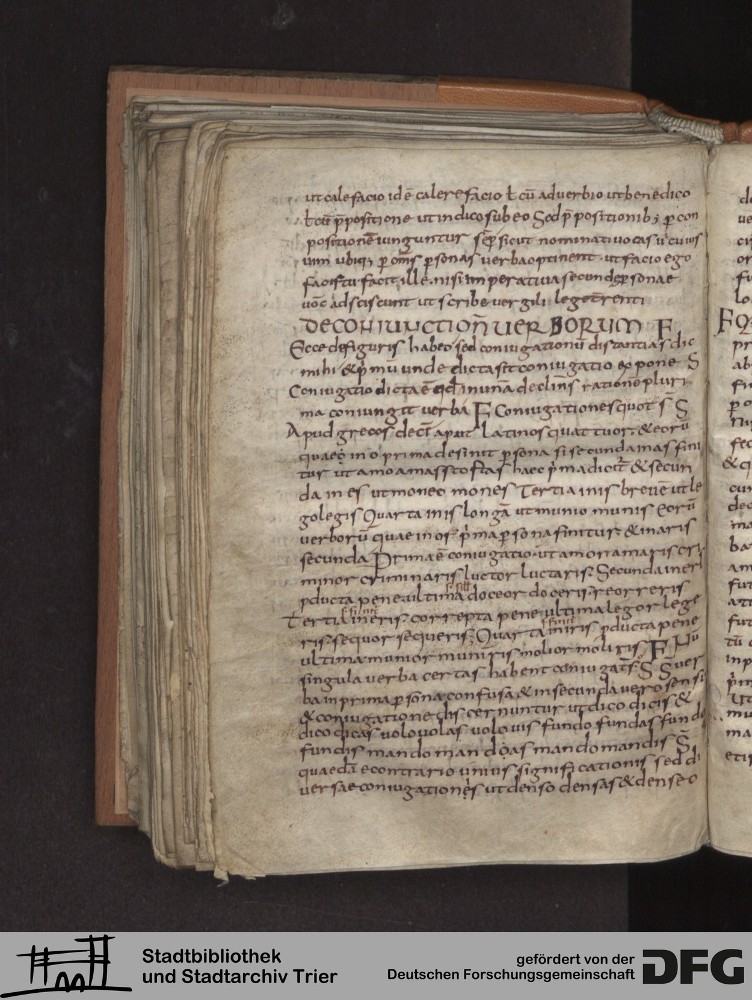 ut calefacio id ē calere facio ł cū adverbio ut benedico
ł cū p̄positione ut indico subeo Sed p̄positionib; p con
positionē iunguntur sēp sicut nominativo casu cuius
um ubiq; p om̄s psonas verba optinent ut facio ego
facis tu facit ille nisi imperativa secundę psonae
voc̄ adsciscunt ut scribe vergili lege terenti
DE CONIUNCTIOÑ UERBORUM F
Ecce de figuris habeo sed coniugationū distantias dic
mihi & p̄mū unde dicta sit coniugatio expone S
Coniugatio dicta ē qđ in unā declin̄s ratione pluri
ma coniungit verba F Coniugationes quot s̄ S
Apud grecos decē aput Latinos quattuor & eorū
quae in o prima desinut psona si secunda in as fini
tur ut amo amas sto stas haec p̄ma dicit̄ & secun
da in es ut moneo mones Tertia in is breuē ut le
go legis Quarta in is longā ut munio munis Eorū
verborū quae in or p̄ma psona finitur & in aris
secunda Prima ē coniugatio ut amor amaris cri
minor criminaris luctor luctaris Secunda in eri
pducta peneultima doceor doceris reor reris
Tertia in eris correpta peneultima legor lege
ris sequor sequeris; Quarta in iris pducta pene
ultima munior muniris molior moliris F
singula verba certas habent coniugat̄s S S ver
ba in prima psona confusa & in secunda vero sensu
& coniugatione discernuntur ut dico dicis &
dico dicas volo volas volo vis fundo fundas fundo
fundis mando mandas mando mandis S
quaedā e contrario unius significationis sed di
versae coniugationis ut denso densas & denseo
Stadtbibliothek
und Stadtarchiv Trier
gefördert von der
Deutschen Forschungsgemeinschaft
DFG